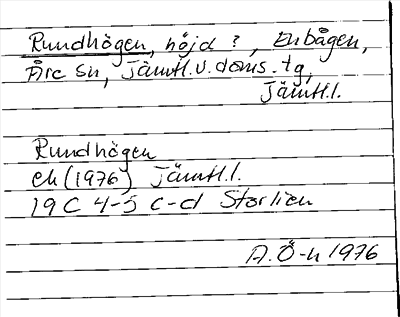 Rundhögen, höjd ?, Enbågen,
Åre sn, Jämtl.v.doms.-tg,
Jämtl.l.
Rundhögen
ek (1976) Jämtl.l.
19C 4-5 c-d Storlien
A.Ö-n 1976